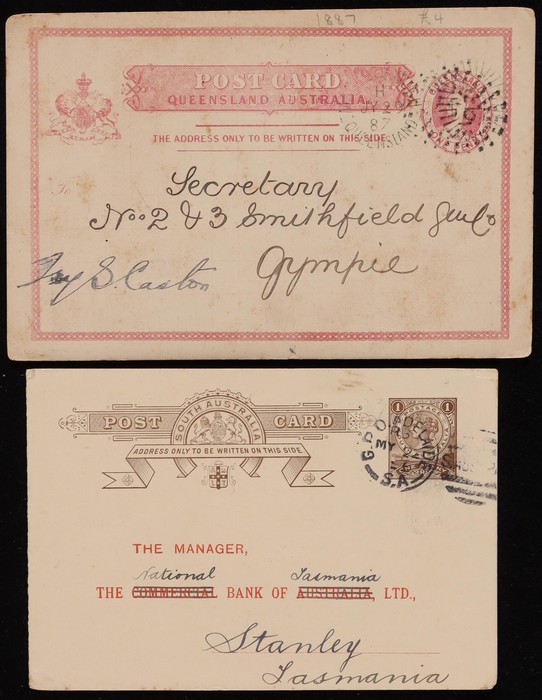 1887 £4
POST CARD
QUEENSLAND AUSTRALIA
THE ADDRESS ONLY TO BE WRITTEN ON THIS SIDE.
QUEENSLAND
87
To
Secretary
Nos 2 & 3 Smithfield
Gympie
S. Caston
SOUTH AUSTRALIA
POST CARD
ADDRESS ONLY TO BE WRITTEN ON THIS SIDE.
1 POSTAGE 1
G.P.O. ADELAIDE
MY
S.A
THE MANAGER,
National Tasmania
THE COMMERCIAL BANK OF AUSTRALIA, LTD.,
Stanley
Tasmania